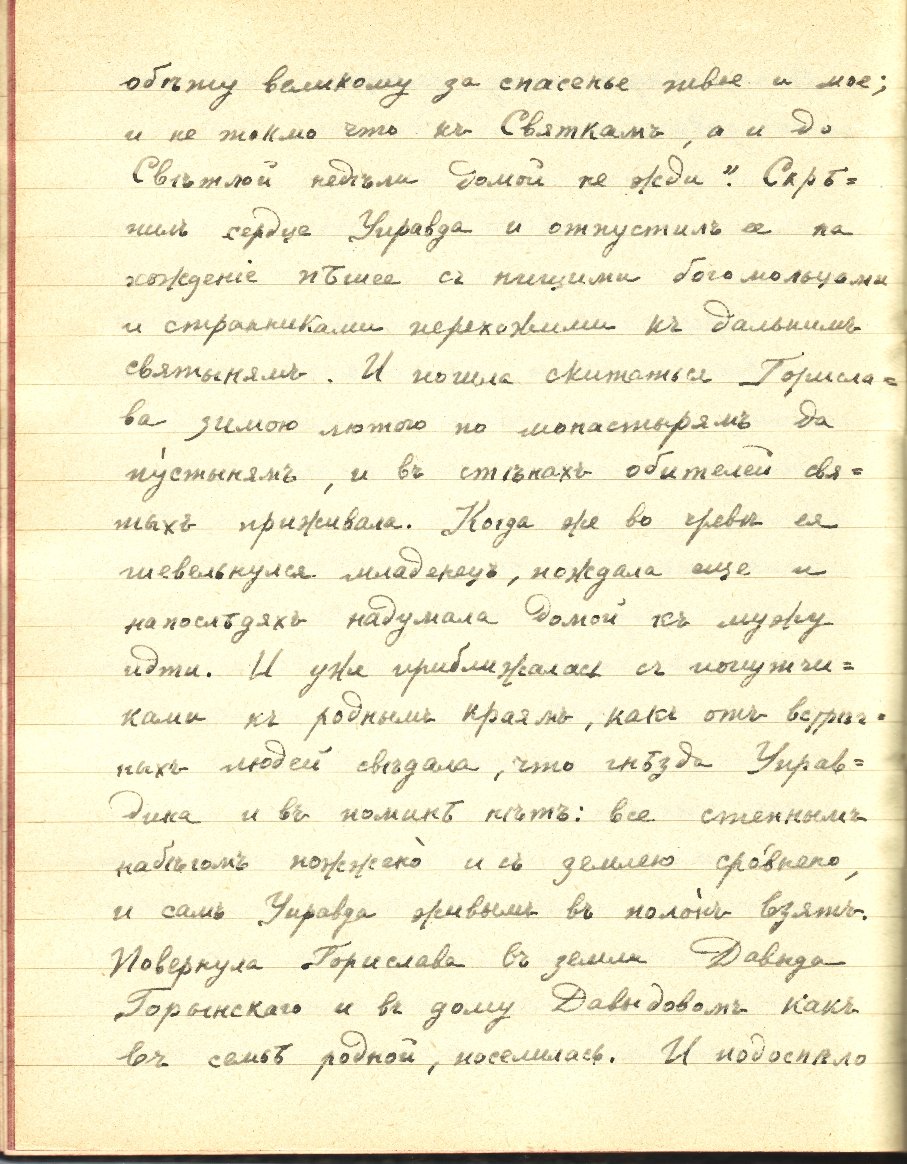 обѣту великому за спасенье твое и мое;
и не токмо что къ Святкамъ, а и до
Свѣтлой недѣли домой не жди". Скрѣ=
пилъ сердце Управда и отпустилъ ее на
хожденіе пѣшее съ нищими богомольцами
и странниками перехожими къ дальнимъ
святынямъ. И пошла скитаться Горисла=
ва зимою лютою по монастырямъ да
пу́стынямъ, и въ стѣнахъ обителей свя=
тыхъ приживала. Когда же во чревѣ ея
шевельнулся младенецъ, пождала еще и
напослѣдяхъ надумала домой къ мужу
идти. И уже приближалась съ попутчи=
ками къ роднымъ краямъ, какъ отъ встрѣч=
ныхъ людей свѣдала, что гнѣзда Управ=
дина и въ поминѣ нѣтъ: все степнымъ
набѣгомъ пожжено̀ и съ землею сро́внено,
и самъ Управда живымъ въ поло́нъ взятъ.
Повернула Горислава въ земли Давыда
Горынскаго и въ дому Давыдовомъ какъ
въ семьѣ родной, поселилась. И подоспѣло